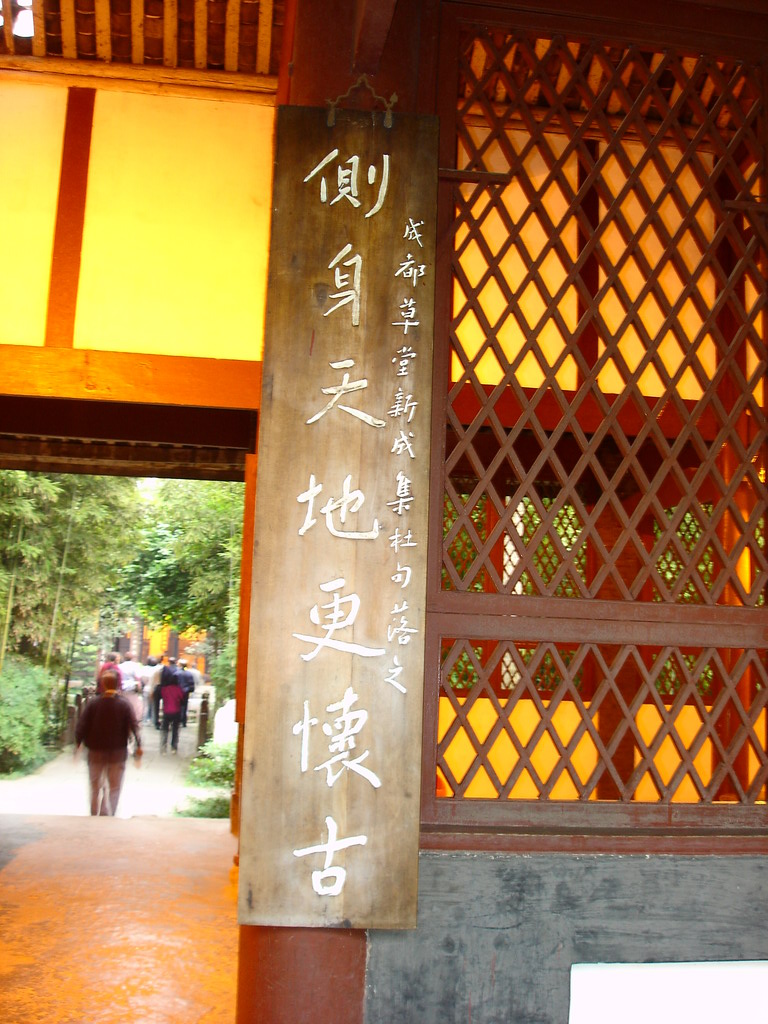 成都草堂新成集杜句落之
側身天地更懷古